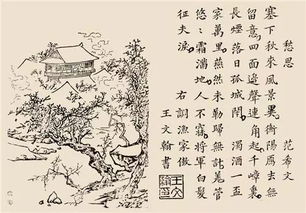 愁思　范希文
塞下秋來風景異衡陽鴈去無
留意四面邊聲連角起千嶂裏
長煙落日孤城閉　濁酒一盃
家萬里燕然未勒歸無計羌管
悠〻霜滿地人不寐將軍白髮
征夫淚　右調漁家傲
王文翰書